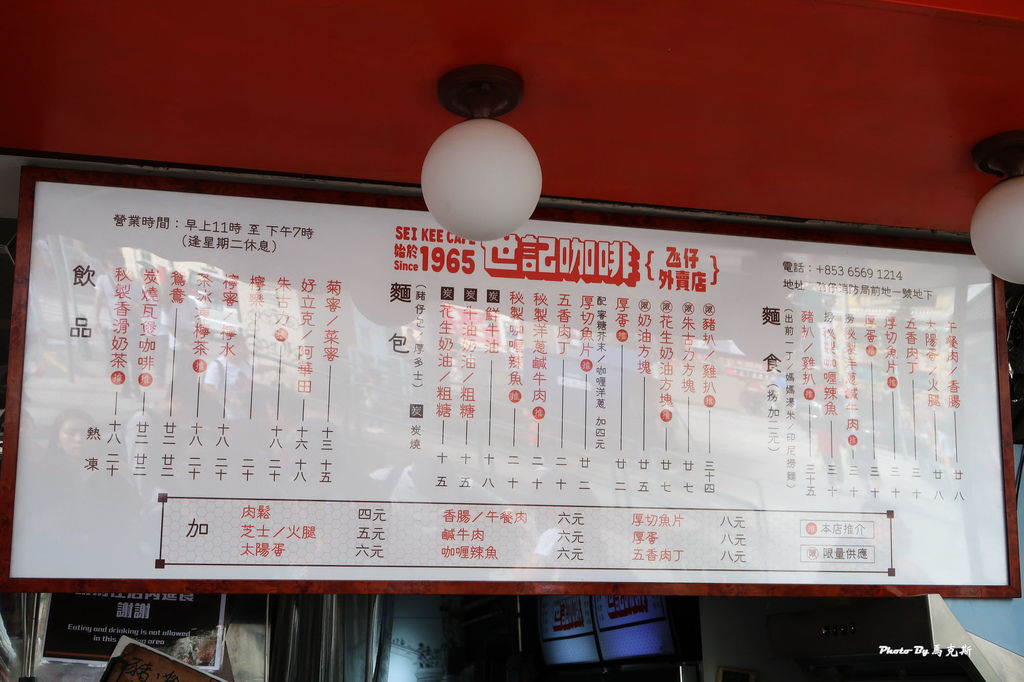 營業時間：早上11時 至 下午7時
（逢星期二休息）
SEI KEE CAFE
始於
Since
1965
世記咖啡
{氹仔外賣店}
電話：+853 6569 1214
飲品
熱
凍
秘製香滑奶茶 推 十八 二十
炭燒瓦煲咖啡 推 廿二 廿二
鴛鴦 廿二 廿二
茶冰 推 十八 二十
檸蜜／檸水 十八 二十
檸樂 二十
朱古力 推 十八 二十
好立克／阿華田 十六 十八
菊蜜／菜蜜 十三 十五
麵包
（豬仔包／厚多士） 炭 炭燒
炭 花生奶油／粗糖 十五
炭 牛油奶油／粗糖 十五
炭 鮮牛油 十八
秘製咖喱辣魚 推
秘製洋蔥鹹牛肉 推
五香肉丁 二十
厚切魚片 推 廿二
配蜜糖芥末／咖喱洋蔥 加四元
厚蛋 推 廿二
限 奶油方塊 廿五
限 花生奶油方塊 推 廿七
限 朱古力方塊 廿七
限 豬扒／雞扒 推 三十四
麵食
（出前一丁／媽媽湯米／印尼撈麵）
（撈 加二元）
豬扒／雞扒 推 三十五
厚蛋 推
厚切魚片 推
五香肉丁
太陽蛋／火腿 廿八
午餐肉／香腸 廿八
加
肉鬆 四元
芝士／火腿 五元
太陽蛋 六元
香腸／午餐肉 六元
鹹牛肉 六元
咖喱辣魚 六元
厚切魚片 八元
厚蛋 八元
五香肉丁 八元
推 本店推介
限 限量供應
謝謝
Eating and drinking is not allowed
in this area
Photo By 馬克斯